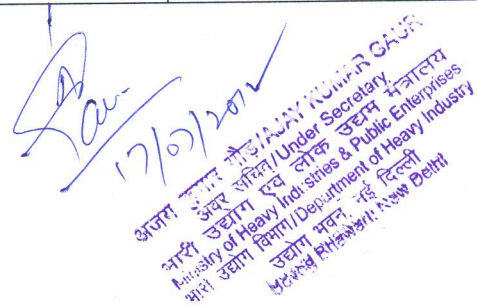 17/07/2012
अजय कुमार गौड़/AJAY KUMAR GAUR
अवर सचिव/Under Secretary
भारी उद्योग एवं लोक उद्यम मंत्रालय
Ministry of Heavy Industries & Public Enterprises
भारी उद्योग विभाग/Department of Heavy Industry
उद्योग भवन, नई दिल्ली
New Delhi